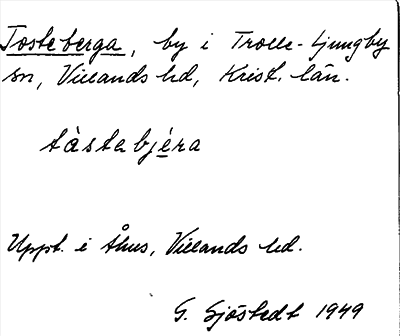 Tosteberga, by i Trolle-Ljungby
sn, Villands hd, Krist. län.
tàstabjéra
Uppt. i Åhus, Villands hd.
G. Sjöstedt 1949